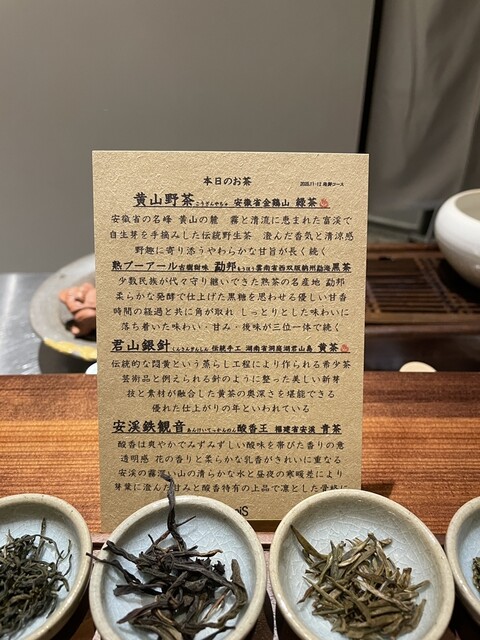 本日のお茶
黄山野茶 こうざんやちゃ 安徽省金鶏山 緑茶
安徽省の名峰 黄山の麓 霧と清流に恵まれた富渓で
自生芽を手摘みした伝統野生茶 澄んだ香気と清涼感
野趣に寄り添うやわらかな甘旨が長く続く
熟プーアール 古樹餅味 勐邦 もうほう 雲南省西双版納州勐海 黒茶
少数民族が代々守り継いできた熟茶の名産地 勐邦
柔らかな発酵で仕上げた黒糖を思わせる優しい甘香
時間の経過と共に角が取れ しっとりとした味わいに
落ち着いた味わい・甘み・後味が三位一体で続く
君山銀針 くんざんぎんしん 伝統手工 湖南省洞庭湖君山島 黄茶
伝統的な悶黄という蒸らし工程により作られる希少茶
芸術品と例えられる針のように整った美しい新芽
技と素材が融合した黄茶の奥深さを堪能できる
優れた仕上がりの年といわれている
安渓鉄観音 あんけいてっかんのん 酸香王 福建省安渓 青茶
酸香は爽やかでみずみずしい酸味を帯びた香りの意
透明感 花の香りと柔らかな乳香がきれいに重なる
安渓の霧深い山の清らかな水と昼夜の寒暖差により
芽葉に澄んだ甘みと酸香特有の上品で凛とした骨格に